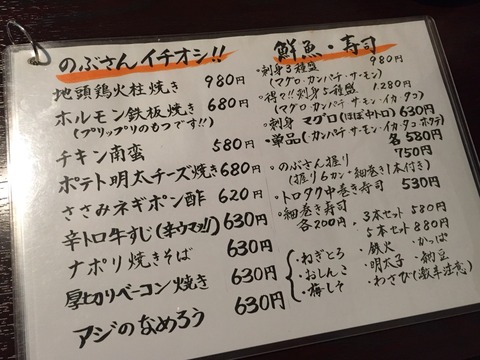 のぶさんイチオシ!!
地頭鶏火柱焼き 980円
ホルモン鉄板焼き 680円
(プリップリのもつです!!)
チキン南蛮 580円
ポテト明太チーズ焼き 680円
ささみネギポン酢 620円
辛トロ牛すじ(辛ウマッ!!) 630円
ナポリ焼きそば 630円
厚切りベーコン焼き 630円
アジのなめろう 630円
鮮魚・寿司
・刺身3種盛 980円
(マグロ・カンパチ・サーモン)
・得々!!刺身5種盛 1.280円
(マグロ・カンパチ・サーモン・イカ・タコ)
・刺身 マグロ(ほぼ中トロ) 630円
・単品(カンパチ・サーモン・イカ・タコ・ホタテ) 各580円
・のぶさん握り 750円
(握り6カン・細巻き1本付き)
・トロタク中巻き寿司 530円
・細巻き寿司
各200円・3本セット 580円
・5本セット 880円
・ねぎとろ ・鉄火 ・かっぱ
・おしんこ ・明太子 ・納豆
・梅しそ ・わさび(激辛注意)